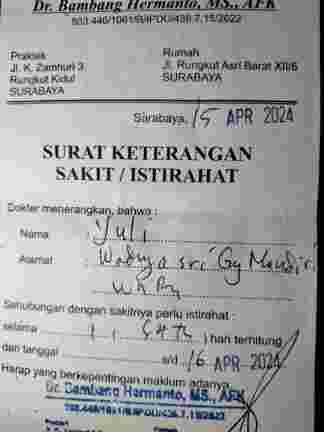 Dr. Bambang Hermanto, MS., AFK
503.446/1061/B/IPDU/436.7.15/2022
Praktek Rumah
Jl. K. Zamhuri 3 Jl. Rungkut Asri Barat XII/6
Rungkut Kidul SURABAYA
SURABAYA
Surabaya, 15 APR 2024
SURAT KETERANGAN
SAKIT / ISTIRAHAT
Dokter menerangkan, bahwa :
Nama : Yuli
Alamat :
Sehubungan dengan sakitnya perlu istirahat :
selama ) hari terhitung
dari tanggal s/d 16 APR 2024
Harap yang berkepentingan maklum adanya.
Dr. Bambang Hermanto, MS., AFK
503.446/1061/B/IPDU/436.7.15/2022